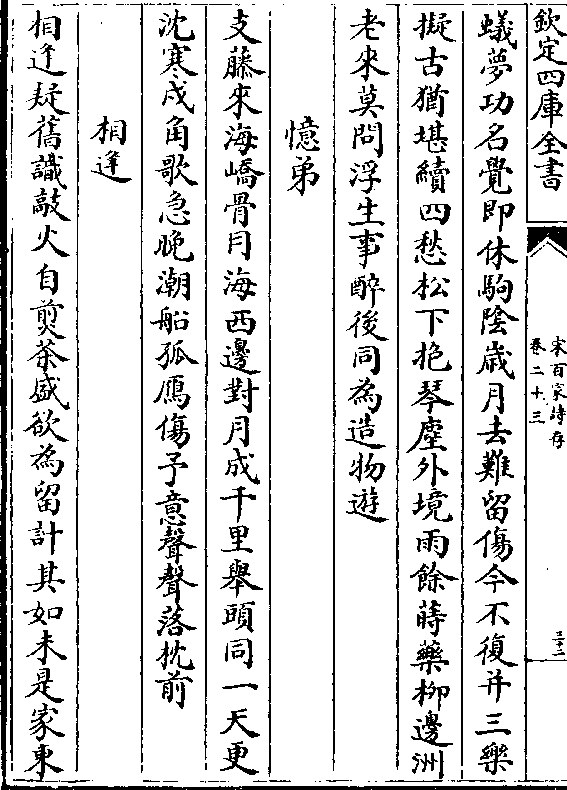 欽定四庫全書
宋百家詩存
卷二十三
三十二
蟻夢功名覺即休駒陰歲月去難留傷今不復并三樂
擬古猶堪續四愁松下抱琴塵外境雨餘蒔藥柳邊洲
老來莫問浮生事醉後同為造物遊
憶弟
支藤來海嶠骨月海西邊對月成千里舉頭同一天更
沈寒戍角歌急晚潮船孤鴈傷予意聲聲落枕前
相逢
相逢疑舊識敲火自煎茶盛欲為留計其如未是家東